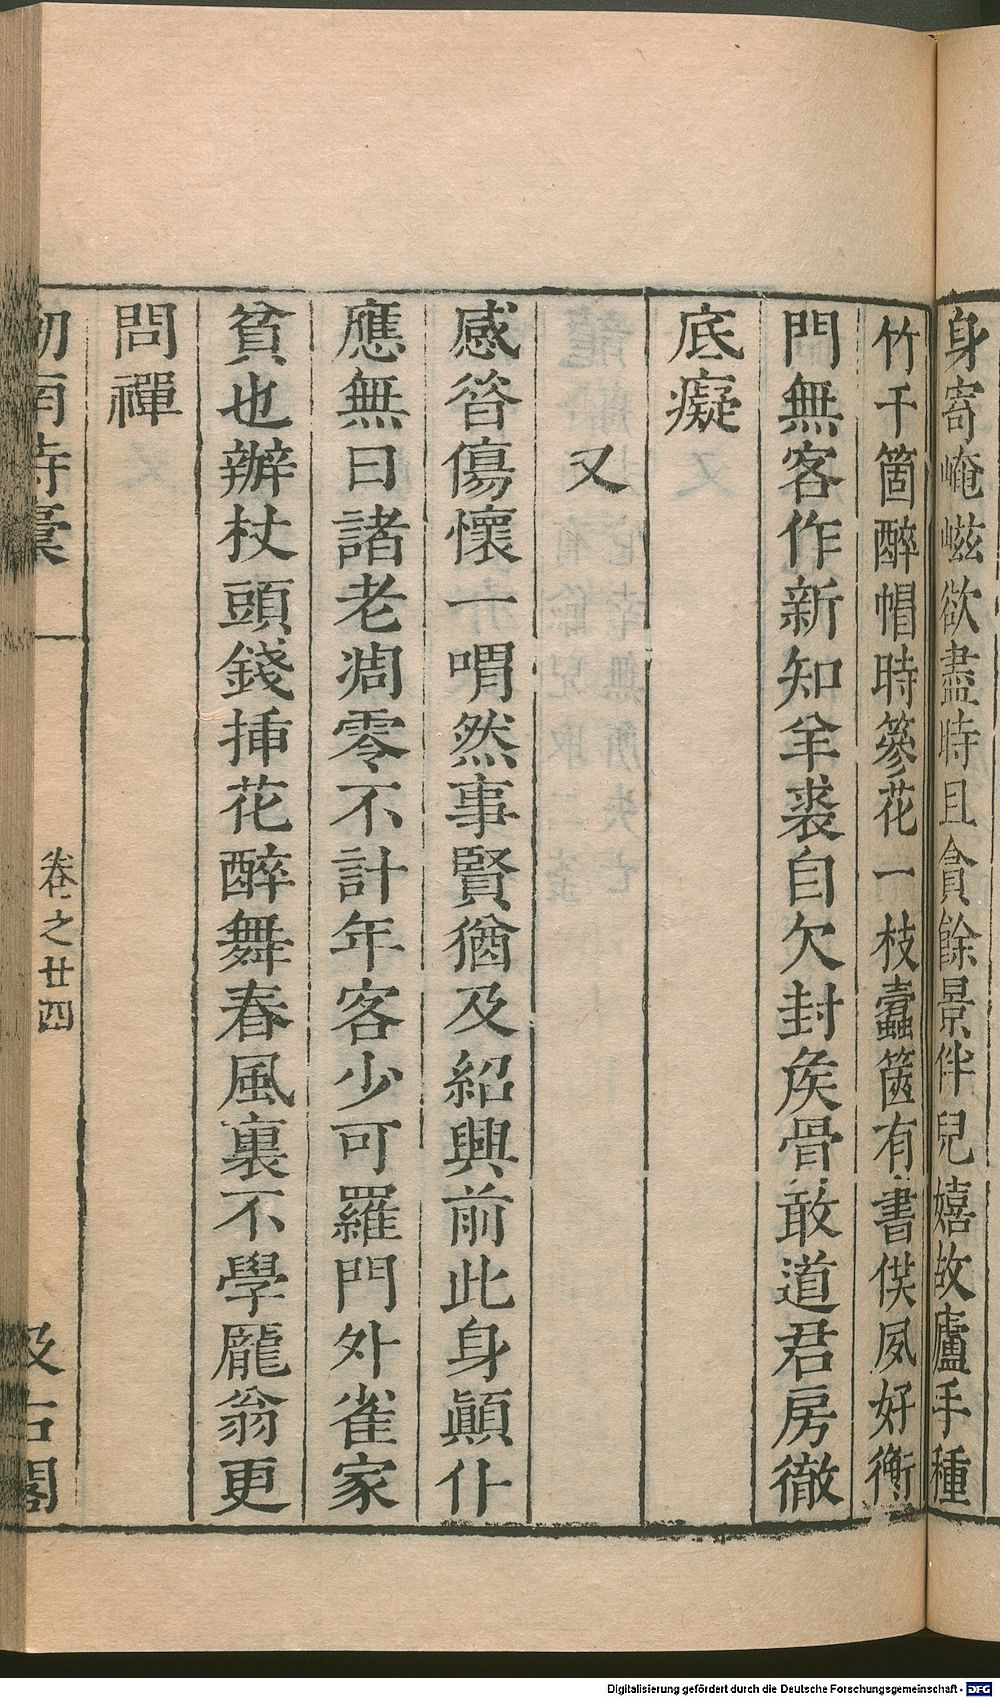 身寄崦嵫欲盡時且貪餘景伴兒嬉故廬手種
竹千箇醉帽時簪花一枝蠹篋有書供夙好衡
門無客作新知羊裘自欠封侯骨敢道君房徹
底癡
又
感昝傷懷一喟然事賢猶及紹興前此身顚仆
應無日諸老凋零不計年客少可羅門外雀家
貧也辦杖頭錢揷花醉舞春風裏不學龎翁更
問禪
劒南詩稾
卷之廿四
汲古閣
Digitalisierung gefördert durch die Deutsche Forschungsgemeinschaft - DFG